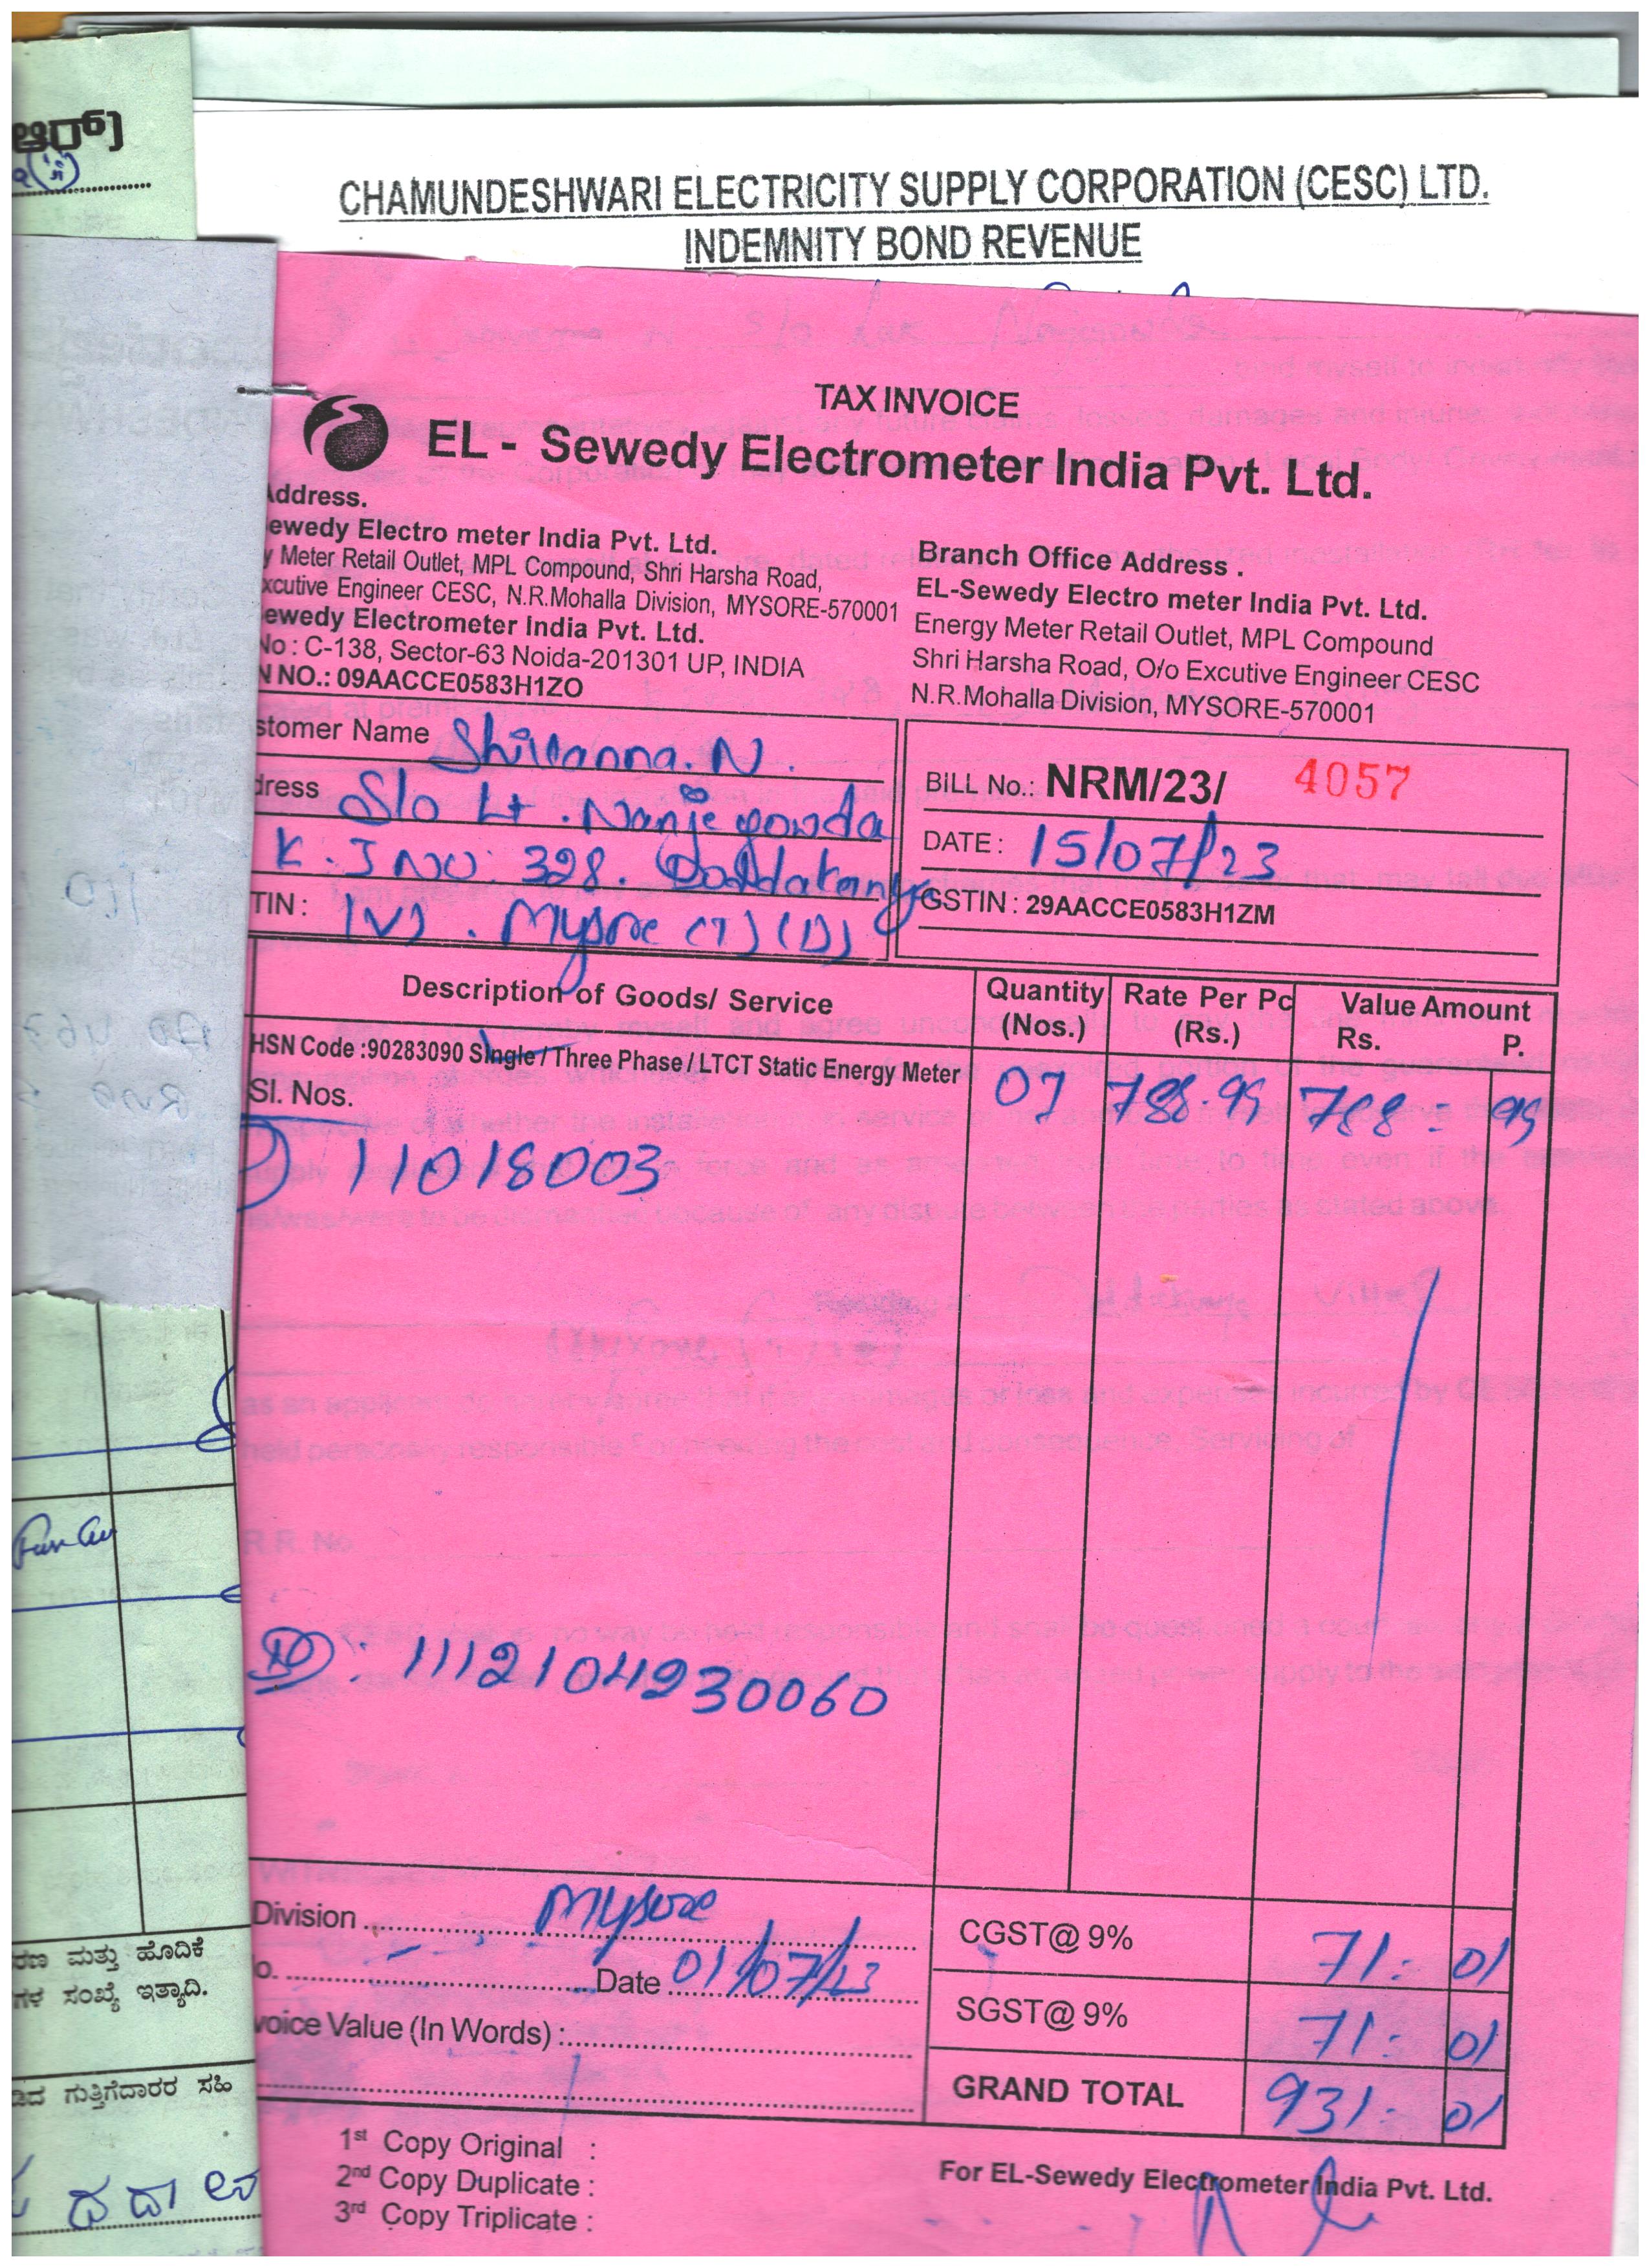 ಆರ್)
CHAMUNDESHWARI ELECTRICITY SUPPLY CORPORATION (CESC) LTD.
INDEMNITY BOND REVENUE
TAX INVOICE
EL - Sewedy Electrometer India Pvt. Ltd.
Address.
ewedy Electro meter India Pvt. Ltd.
y Meter Retail Outlet, MPL Compound, Shri Harsha Road,
xcutive Engineer CESC, N.R.Mohalla Division, MYSORE-570001
ewedy Electrometer India Pvt. Ltd.
No : C-138, Sector-63 Noida-201301 UP, INDIA
N NO.: 09AACCE0583H1ZO
Branch Office Address .
EL-Sewedy Electro meter India Pvt. Ltd.
Energy Meter Retail Outlet, MPL Compound
Shri Harsha Road, O/o Excutive Engineer CESC
N.R.Mohalla Division, MYSORE-570001
stomer Name Shivanna. N.
dress S/o Lt. Nanjegowda
K. J NO: 328. Doddakanya
TIN : (V). Mysore (T) (D)
BiLL No.: NRM/23/ 4057
DATE : 15/07/23
GSTIN : 29AACCE0583H1ZM
Description of Goods/ Service Quantity (Nos.) Rate Per Pc (Rs.) Value Amount Rs. P.
HSN Code :90283090 Single / Three Phase / LTCT Static Energy Meter
Sl. Nos. 01 788.99 788 = 99
11018003
ID: 1112104230060
Division Mysore
o. Date 01/07/23
voice Value (In Words) :
CGST@ 9% 71: 01
SGST@ 9% 71: 01
GRAND TOTAL 931: 01
1st Copy Original :
2nd Copy Duplicate :
3rd Copy Triplicate :
For EL-Sewedy Electrometer India Pvt. Ltd.
ರಣ ಮತ್ತು ಹೊದಿಕೆ
ಗಳ ಸಂಖ್ಯೆ ಇತ್ಯಾದಿ.
ಡಿದ ಗುತ್ತಿಗೆದಾರರ ಸಹಿ